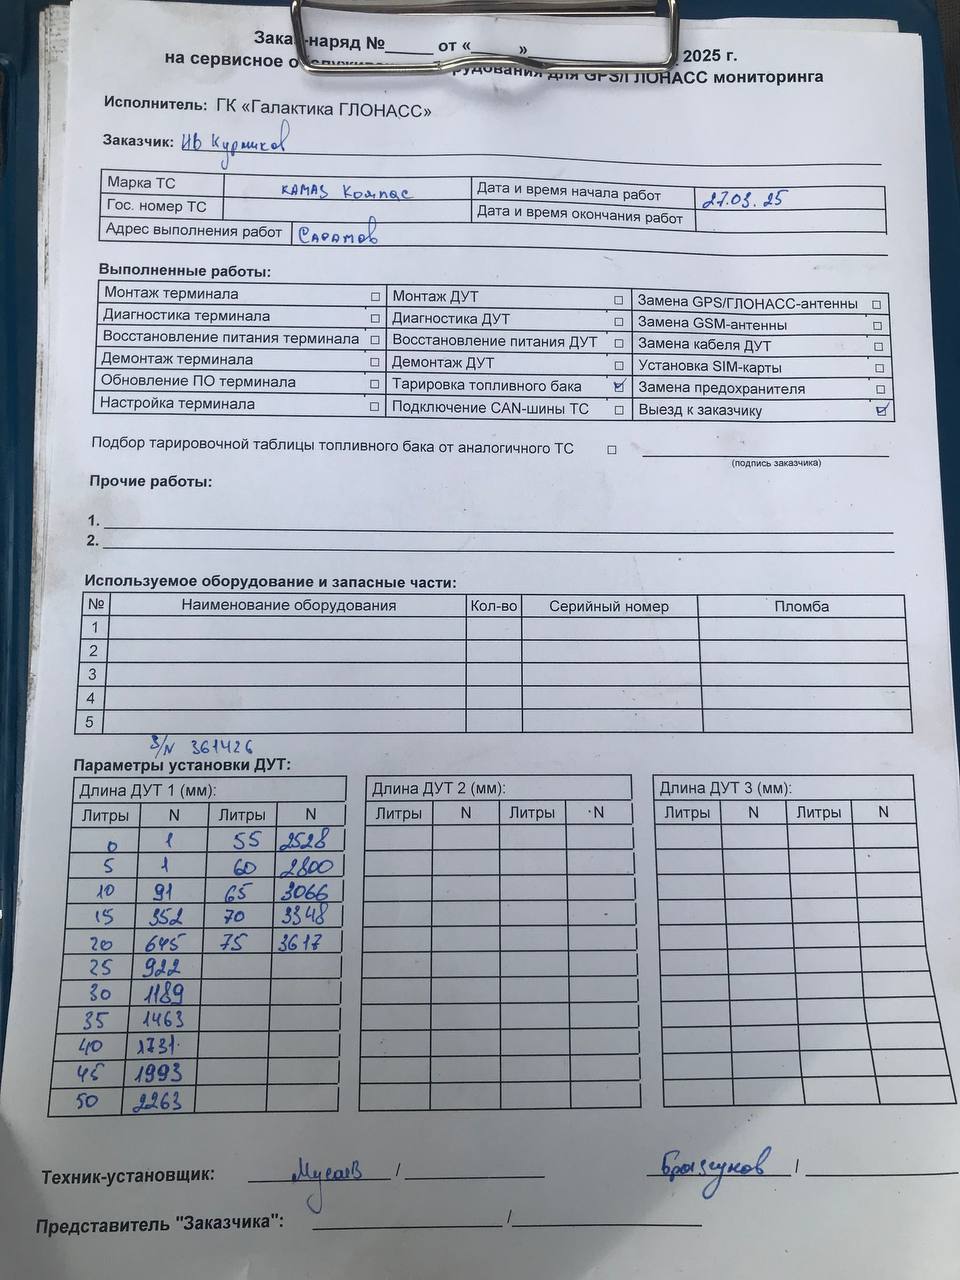 Заказ-наряд №_____ от «____» 2025 г.
на сервисное обслуживание оборудования для GPS/ГЛОНАСС мониторинга
Исполнитель: ГК «Галактика ГЛОНАСС»
Заказчик: ИВ Курмиков
Марка ТС КАМАЗ Компас Дата и время начала работ 27.03.25
Гос. номер ТС Дата и время окончания работ
Адрес выполнения работ Саратов
Выполненные работы:
Монтаж терминала ☐ Монтаж ДУТ ☐ Замена GPS/ГЛОНАСС-антенны ☐
Диагностика терминала ☐ Диагностика ДУТ ☐ Замена GSM-антенны ☐
Восстановление питания терминала ☐ Восстановление питания ДУТ ☐ Замена кабеля ДУТ ☐
Демонтаж терминала ☐ Демонтаж ДУТ ☐ Установка SIM-карты ☐
Обновление ПО терминала ☐ Тарировка топливного бака ☑ Замена предохранителя ☐
Настройка терминала ☐ Подключение CAN-шины ТС ☐ Выезд к заказчику ☑
Подбор тарировочной таблицы топливного бака от аналогичного ТС ☐
(подпись заказчика)
Прочие работы:
1.
2.
Используемое оборудование и запасные части:
№ Наименование оборудования Кол-во Серийный номер Пломба
1
2
3
4
5
S/N 361426
Параметры установки ДУТ:
Длина ДУТ 1 (мм): Длина ДУТ 2 (мм): Длина ДУТ 3 (мм):
Литры N Литры N Литры N Литры N Литры N Литры N
0 1 55 2528
5 1 60 2800
10 91 65 3066
15 352 70 3348
20 645 75 3617
25 922
30 1189
35 1463
40 1731
45 1993
50 2263
Техник-установщик: Мусаев / Брызгунов /
Представитель "Заказчика": /